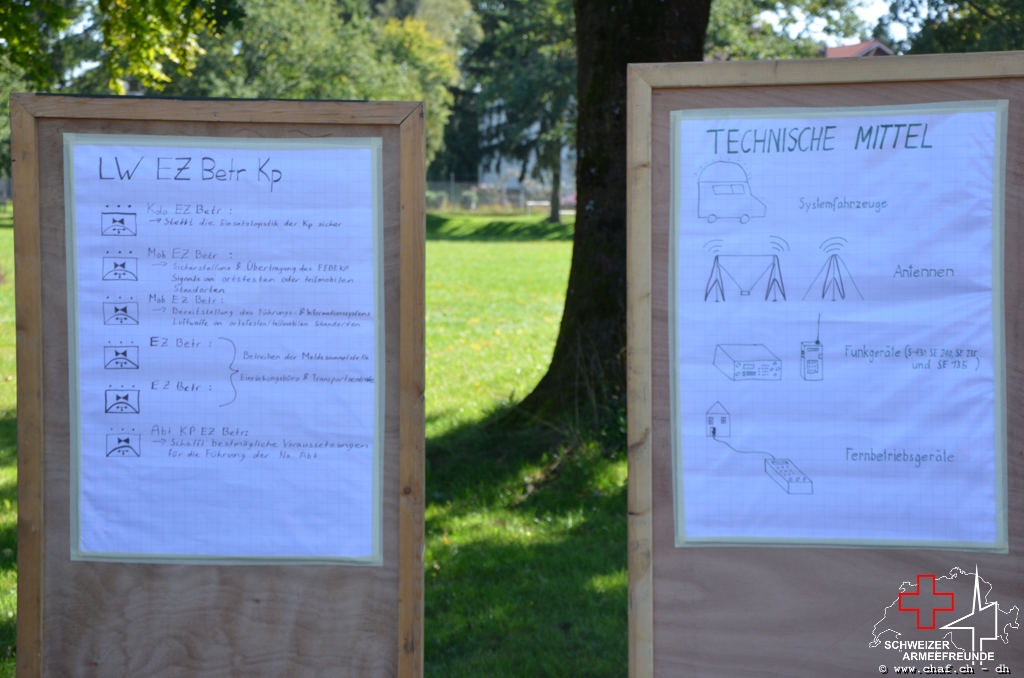 LW EZ Betr Kp
Kdo EZ Betr :
→ Stellt die Einsatzlogistik der Kp sicher
Mob EZ Betr :
→ Sicherstellung & Übertragung des FEDEKP
Signals an ortsfesten oder teilmobilen
Standorten
Mob EZ Betr :
→ Bereitstellung des Führungs- & Informationssystems
Luftwaffe an ortsfesten/teilmobilen Standorten
EZ Betr :
Betreiben der Meldesammelstelle
Einrichtungsbüro & Transportzentrale
EZ Betr :
Abt KP EZ Betr:
→ Schafft bestmögliche Voraussetzungen
für die Führung der Na Abt.
TECHNISCHE MITTEL
Systemfahrzeuge
Antennen
Funkgeräte (SE
und SE 135 )
Fernbetriebsgeräte
SCHWEIZER
ARMEEFREUNDE
© www.chaf.ch - dh